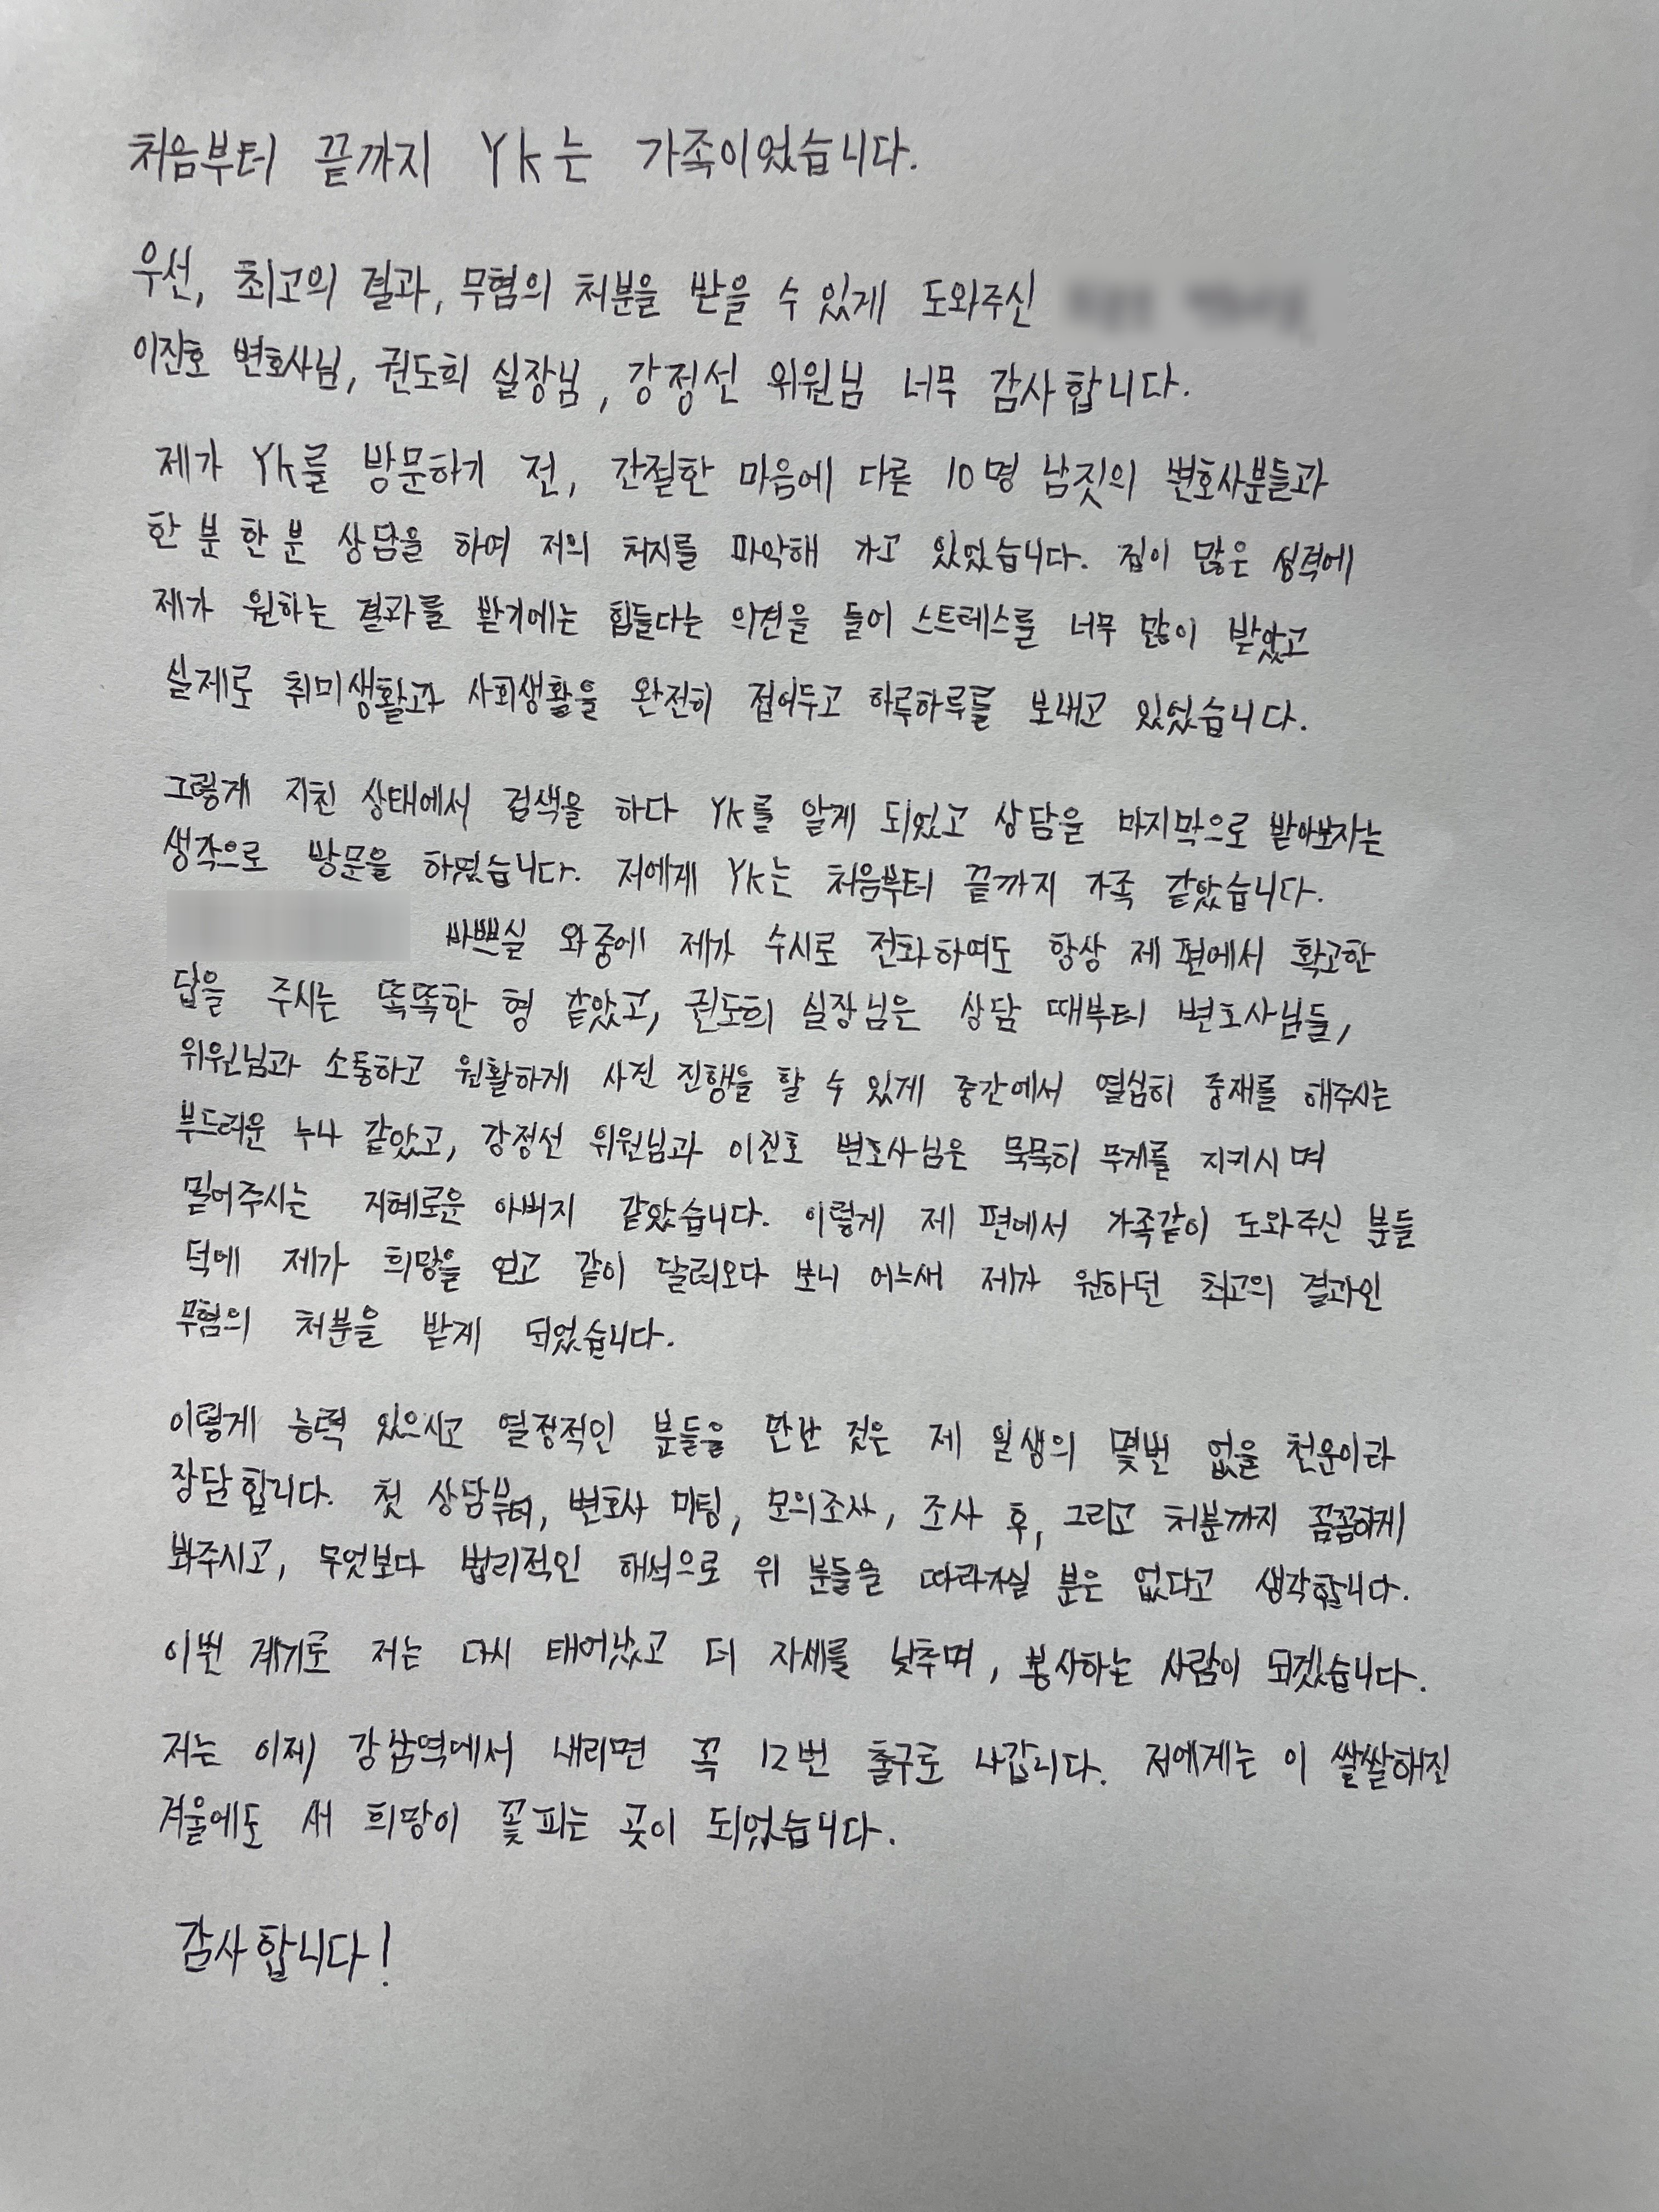 처음부터 끝까지 YK는 가족이었습니다.
우선, 최고의 결과, 무혐의 처분을 받을 수 있게 도와주신
이진호 변호사님, 권도희 실장님, 강정선 위원님 너무 감사합니다.
제가 YK를 방문하기 전, 간절한 마음에 다른 10명 남짓의 변호사분들과
한 분 한 분 상담을 하여 저의 처지를 파악해 가고 있었습니다. 겁이 많은 성격에
제가 원하는 결과를 받기에는 힘들다는 의견을 들어 스트레스를 너무 많이 받았고
실제로 취미생활과 사회생활을 완전히 접어두고 하루하루를 보내고 있었습니다.
그렇게 지친 상태에서 검색을 하다 YK를 알게 되었고 상담을 마지막으로 받아보자는
생각으로 방문을 하였습니다. 저에게 YK는 처음부터 끝까지 가족 같았습니다.
바쁘실 와중에 제가 수시로 전화하여도 항상 제 편에서 확고한
답을 주시는 똑똑한 형 같았고, 권도희 실장님은 상담 때부터 변호사님들,
위원님과 소통하고 원활하게 사건 진행을 할 수 있게 중간에서 열심히 중재를 해주시는
부드러운 누나 같았고, 강정선 위원님과 이진호 변호사님은 묵묵히 무게를 지키시며
밀어주시는 지혜로운 아버지 같았습니다. 이렇게 제 편에서 가족같이 도와주신 분들
덕에 제가 희망을 얻고 같이 달려오다 보니 어느새 제가 원하던 최고의 결과인
무혐의 처분을 받게 되었습니다.
이렇게 능력 있으시고 열정적인 분들을 만난 것은 제 일생의 몇번 없을 천운이라
장담합니다. 첫 상담부터, 변호사 미팅, 모의조사, 조사 후, 그리고 처분까지 꼼꼼하게
봐주시고, 무엇보다 법리적인 해석으로 위 분들을 따라가실 분은 없다고 생각합니다.
이번 계기로 저는 다시 태어났고 더 자세를 낮추며, 봉사하는 사람이 되겠습니다.
저는 이제 강남역에서 내리면 꼭 12번 출구로 나갑니다. 저에게는 이 쌀쌀해진
겨울에도 새 희망이 꽃피는 곳이 되었습니다.
감사합니다!